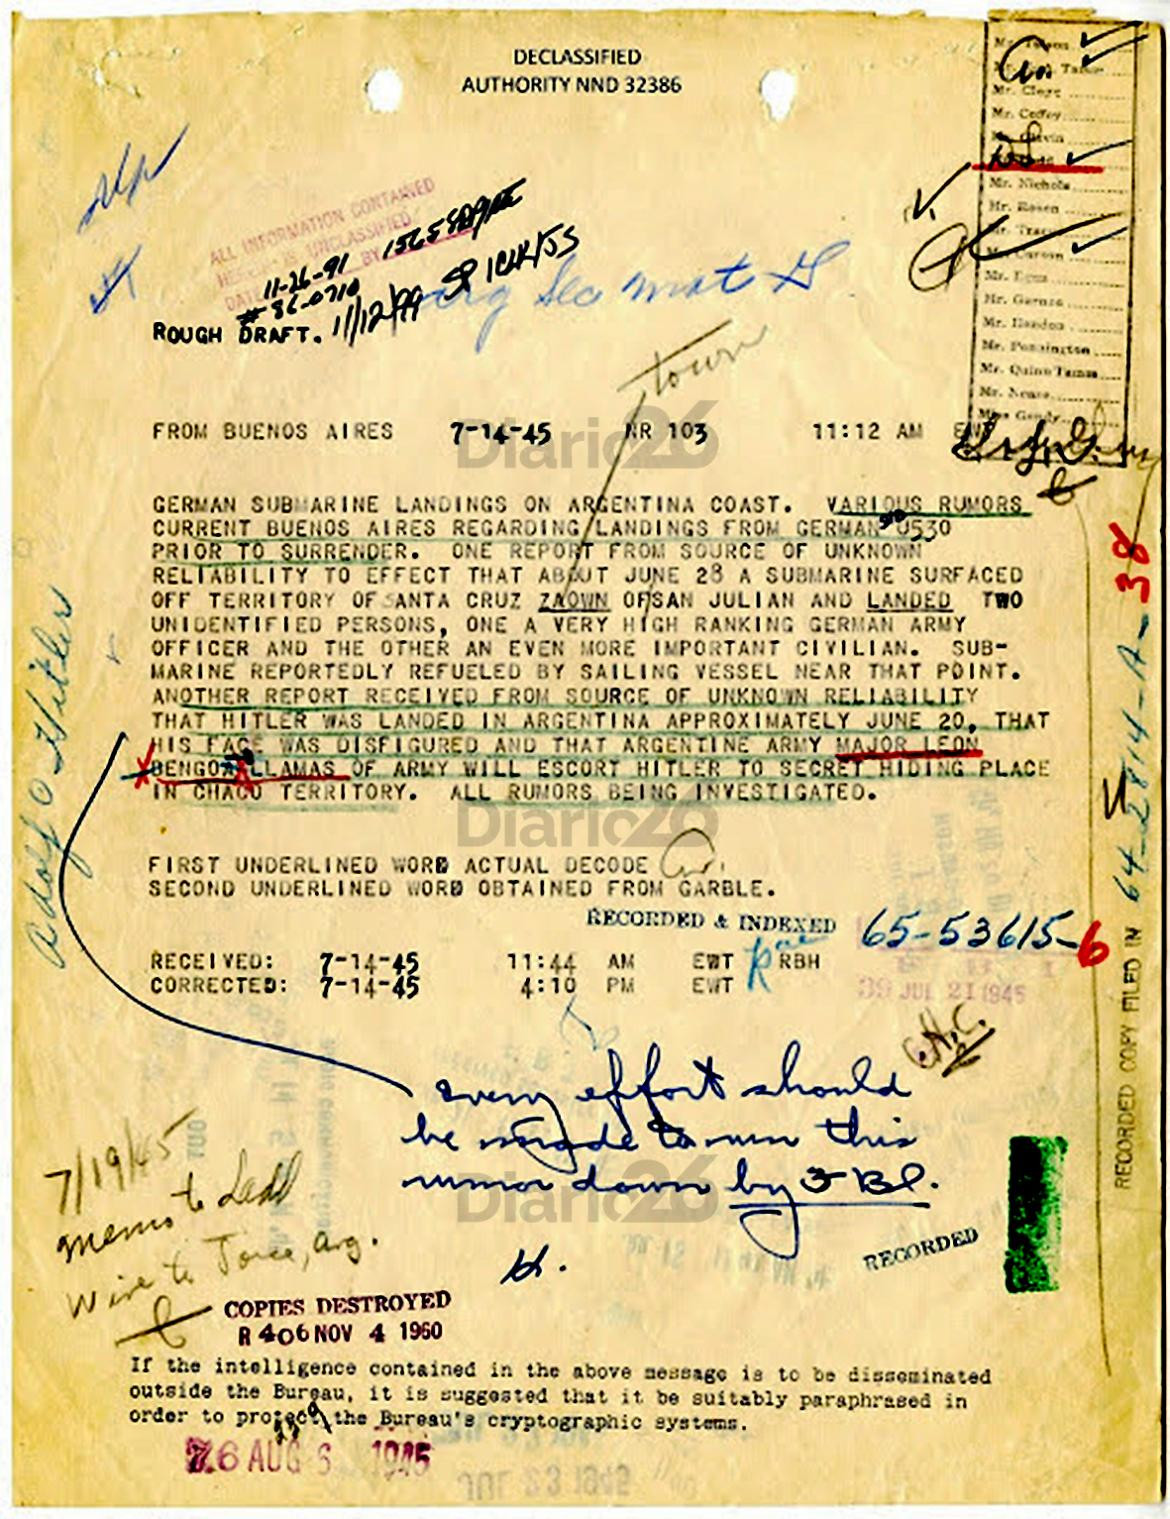 DECLASSIFIED
AUTHORITY NND 32386
Mr. Tolson
Mr. Clegg
Mr. Coffey
Mr. Glavin
Mr. Nichols
Mr. Rosen
Mr. Tracy
Mr. Carson
Mr. Egan
Mr. Hendon
Mr. Pennington
Mr. Quinn Tamm
Mr. Nease
Miss Gandy
ALL INFORMATION CONTAINED
HEREIN IS UNCLASSIFIED
DATE 11-26-91 BY
#86-0710
11/12/99
ROUGH DRAFT.
town
FROM BUENOS AIRES 7-14-45 NR 103 11:12 AM
GERMAN SUBMARINE LANDINGS ON ARGENTINA COAST. VARIOUS RUMORS
CURRENT BUENOS AIRES REGARDING LANDINGS FROM GERMAN U530
PRIOR TO SURRENDER. ONE REPORT FROM SOURCE OF UNKNOWN
RELIABILITY TO EFFECT THAT ABOUT JUNE 28 A SUBMARINE SURFACED
OFF TERRITORY OF SANTA CRUZ ZAOWN OFSAN JULIAN AND LANDED TWO
UNIDENTIFIED PERSONS, ONE A VERY HIGH RANKING GERMAN ARMY
OFFICER AND THE OTHER AN EVEN MORE IMPORTANT CIVILIAN. SUB-
MARINE REPORTEDLY REFUELED BY SAILING VESSEL NEAR THAT POINT.
ANOTHER REPORT RECEIVED FROM SOURCE OF UNKNOWN RELIABILITY
THAT HITLER WAS LANDED IN ARGENTINA APPROXIMATELY JUNE 20, THAT
HIS FACE WAS DISFIGURED AND THAT ARGENTINE ARMY MAJOR LEON
BENGOA LLAMAS OF ARMY WILL ESCORT HITLER TO SECRET HIDING PLACE
IN CHACO TERRITORY. ALL RUMORS BEING INVESTIGATED.
Adolf Hitler
FIRST UNDERLINED WORD ACTUAL DECODE
SECOND UNDERLINED WORD OBTAINED FROM GARBLE.
RECORDED & INDEXED
65-53615-6
RECEIVED: 7-14-45 11:44 AM EWT RBH
CORRECTED: 7-14-45 4:10 PM EWT
39 JUL 21 1945
RECORDED COPY FILED IN 64-2814-A-38
every effort should
be made to run this
rumor down by
H.
7/19/45
memo to Ladd
Wire to Joice, Arg.
RECORDED
COPIES DESTROYED
R 406 NOV 4 1960
If the intelligence contained in the above message is to be disseminated
outside the Bureau, it is suggested that it be suitably paraphrased in
order to protect the Bureau's cryptographic systems.
76 AUG 6 1945
Diario26
Diario26
Diario26